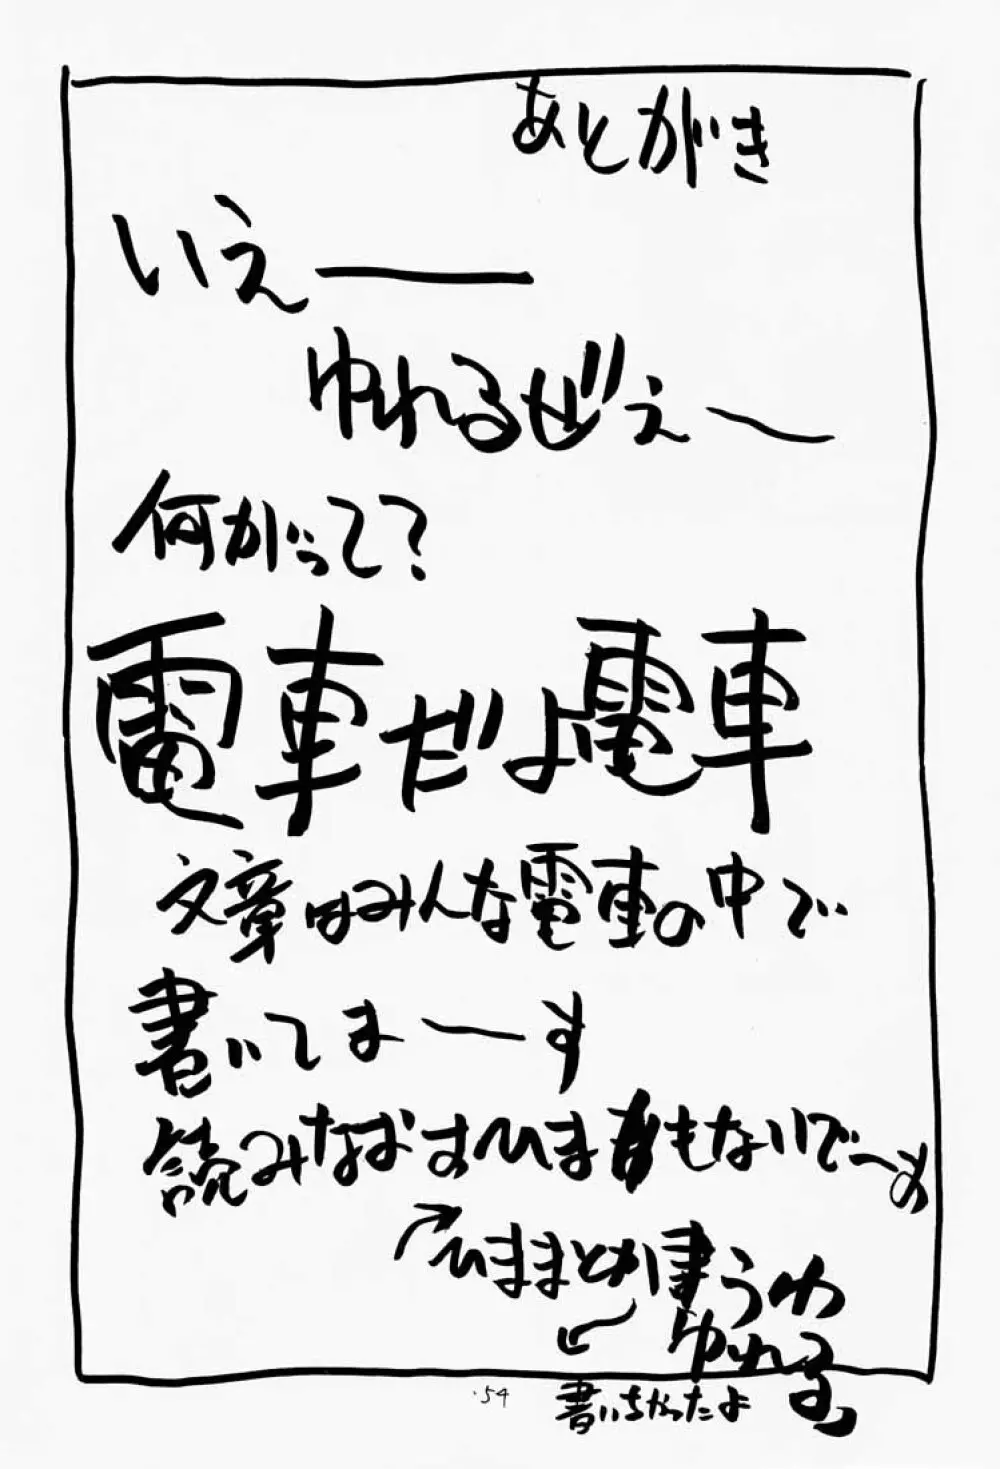 あとがき
いえ――
ゆれるぜぇ〜
何がって?
電車だよ電車
文章はみんな電車の中で
書いてま〜す
読みなおすひまもないで〜す
ひままとか書うわ
ゆれる
書いちゃったよ
54